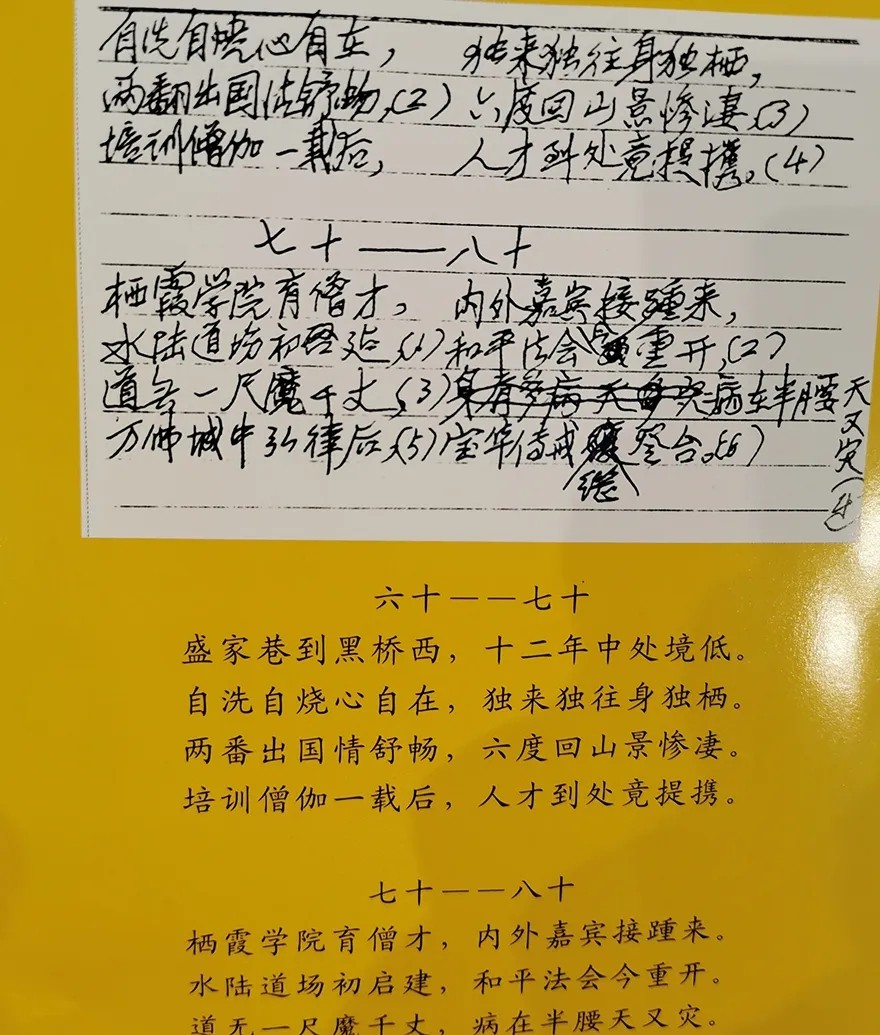 自洗自烧心自在，独来独往身独栖，
两翻出国情舒畅，(2) 六度回山景惨凄，(3)
培训僧伽一载后，人才到处竟提携。(4)
七十——八十
栖霞学院育僧才，内外嘉宾接踵来，
水陆道场初启建，(1) 和平法会今重开，(2)
道无一尺魔千丈，(3) 病在半腰天又灾(4)
万佛城中弘律后，(5) 宝华传戒继登台。(6)
六十——七十
盛家巷到黑桥西，十二年中处境低。
自洗自烧心自在，独来独往身独栖。
两番出国情舒畅，六度回山景惨凄。
培训僧伽一载后，人才到处竟提携。
七十——八十
栖霞学院育僧才，内外嘉宾接踵来。
水陆道场初启建，和平法会今重开。
道无一尺魔千丈，病在半腰天又灾。